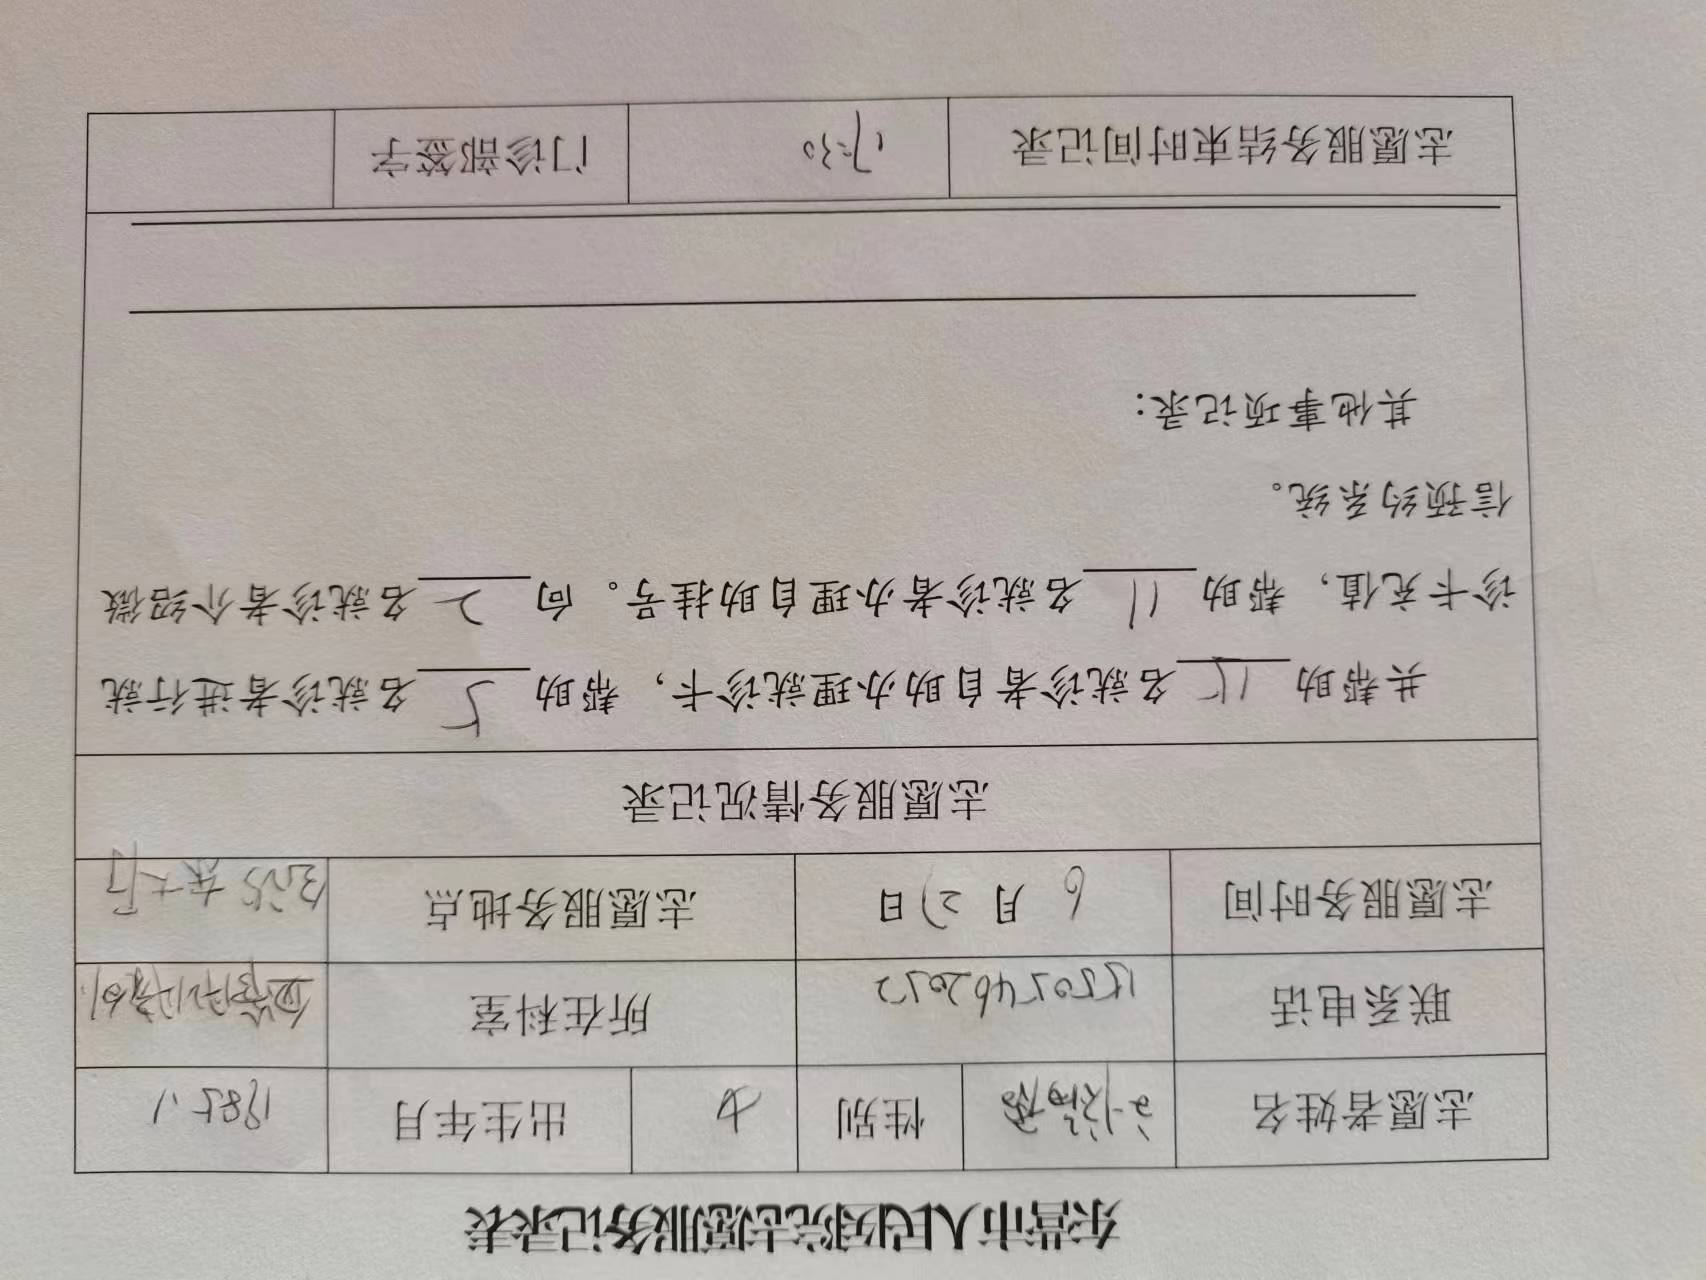 东营市人民医院志愿服务记录表
志愿者姓名 性别 女 出生年月 1985.11
联系电话 15505462052 所在科室
志愿服务时间 6月21日 志愿服务地点 东大厅
志愿服务情况记录
共帮助15名就诊者自助办理就诊卡，帮助5名就诊者进行就
诊卡充值，帮助11名就诊者办理自助挂号。向2名就诊者介绍微
信预约系统。
其他事项记录：
志愿服务结束时间记录 17:30 门诊部签字